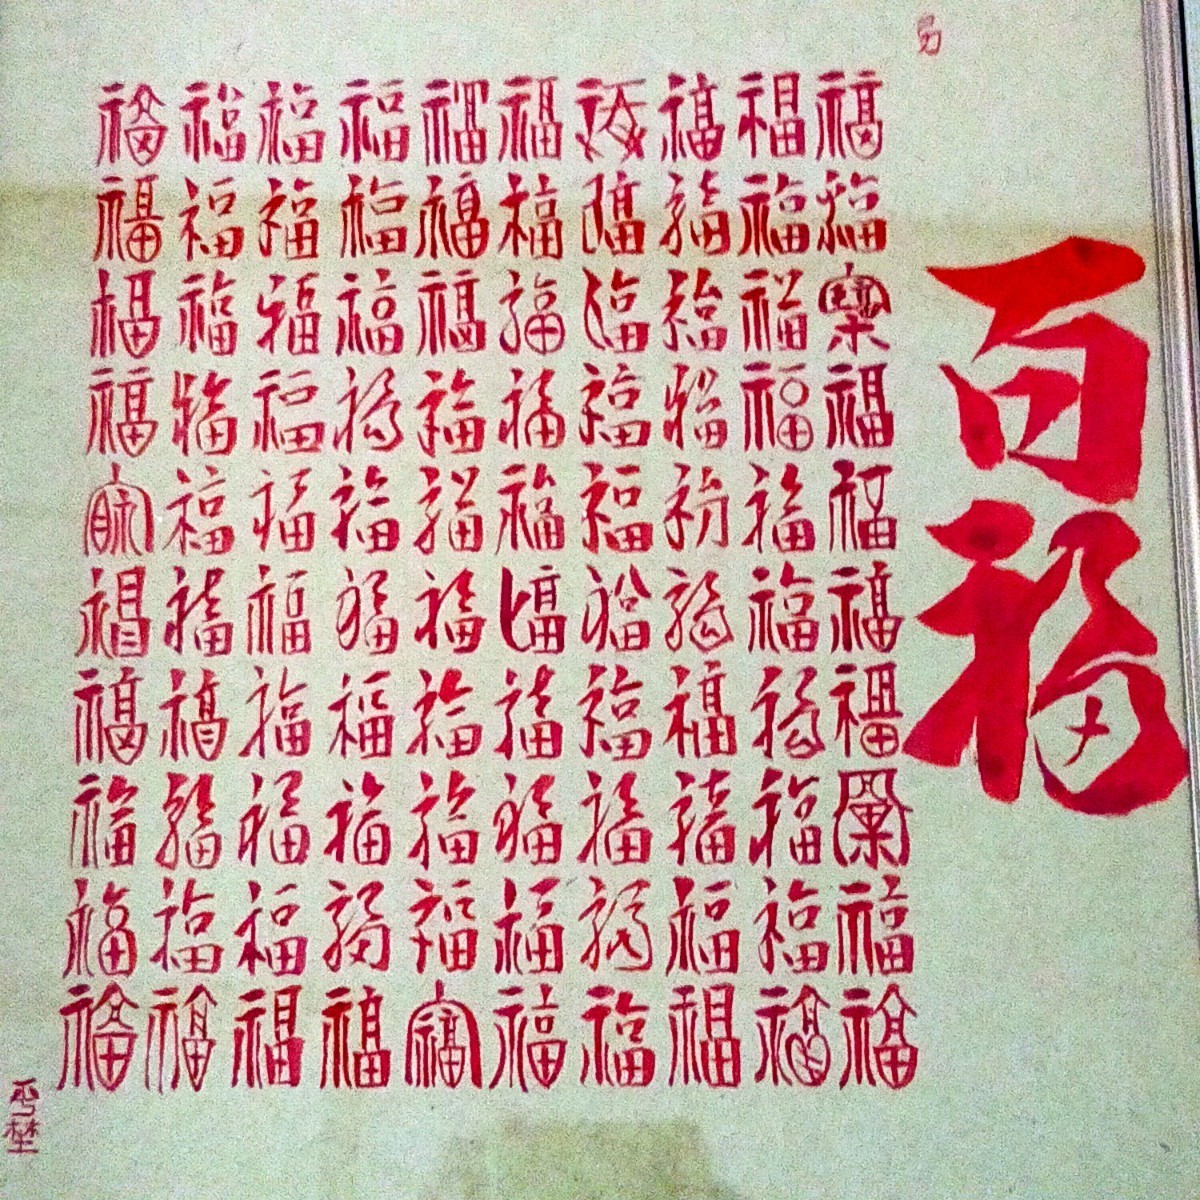 百福
福福福福福福福福福福
福福福福福福福福福福
福福福福福福福福福福
福福福福福福福福福福
福福福福福福福福福福
福福福福福福福福福福
福福福福福福福福福福
福福福福福福福福福福
福福福福福福福福福福
福福福福福福福福福福